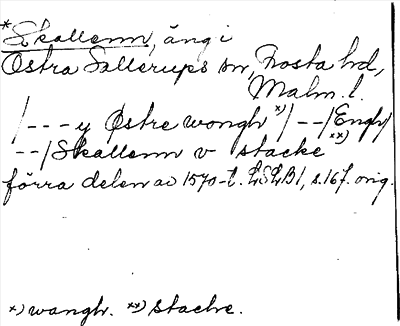 *Skallenn, äng i
Östra Sallerups sn, Frosta hd,
Malm. l.
/---y Østre wongh x)/--/Engh/
--/Skallenn v stacke xx)
förra delen av 1570-t. LSLB1, s.167. orig.
x) wangh. xx) Stache.